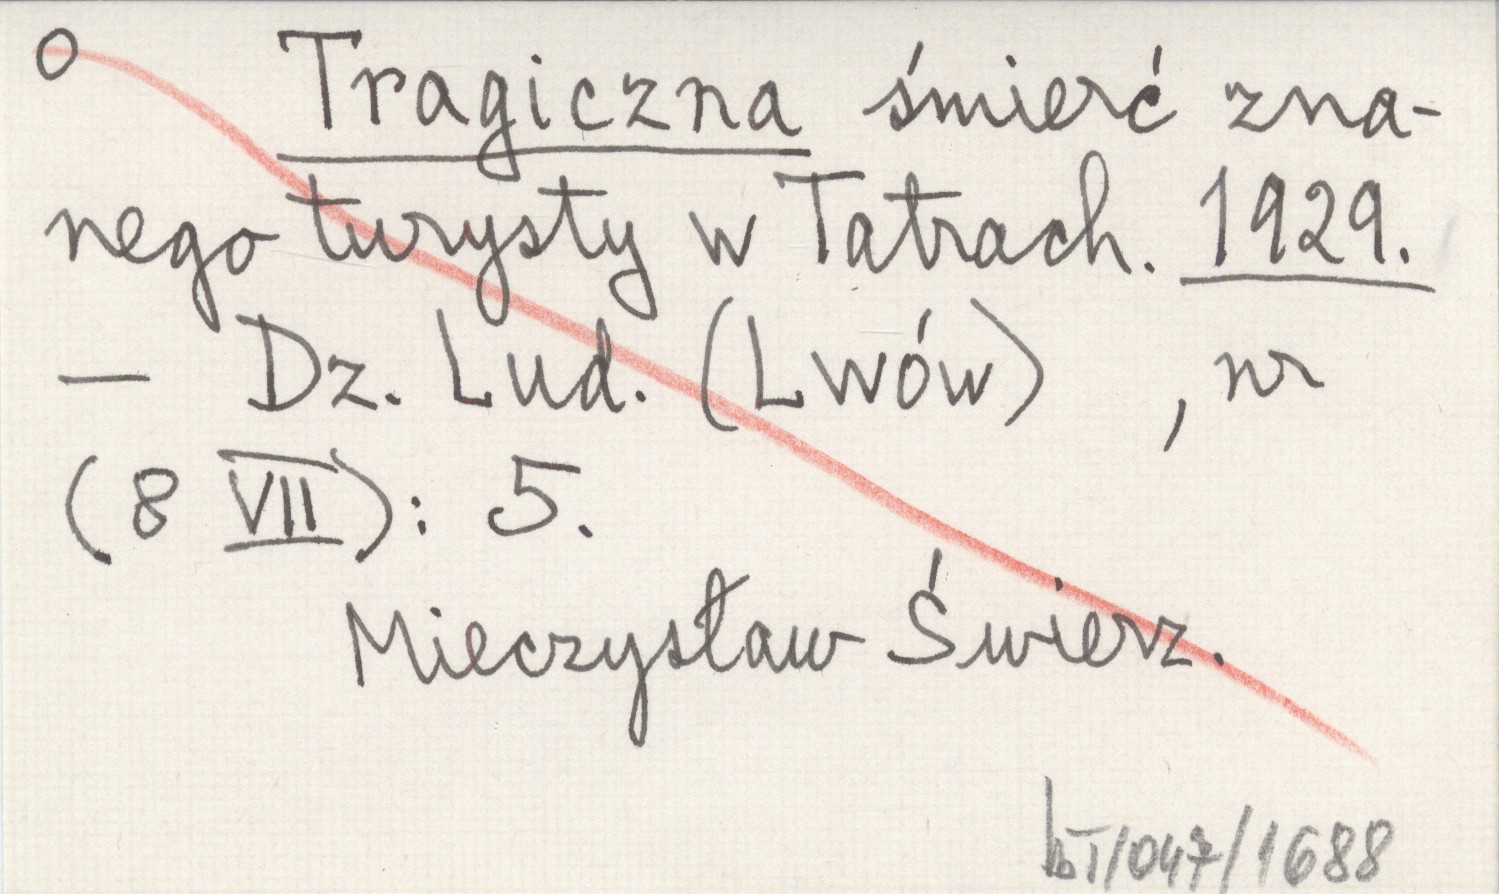 O Tragiczna śmierć zna-
nego turysty w Tatrach. 1929.
— Dz. Lud. (Lwów) , nr
(8 VII): 5.
Mieczysław Świerz.
bT/047/1688